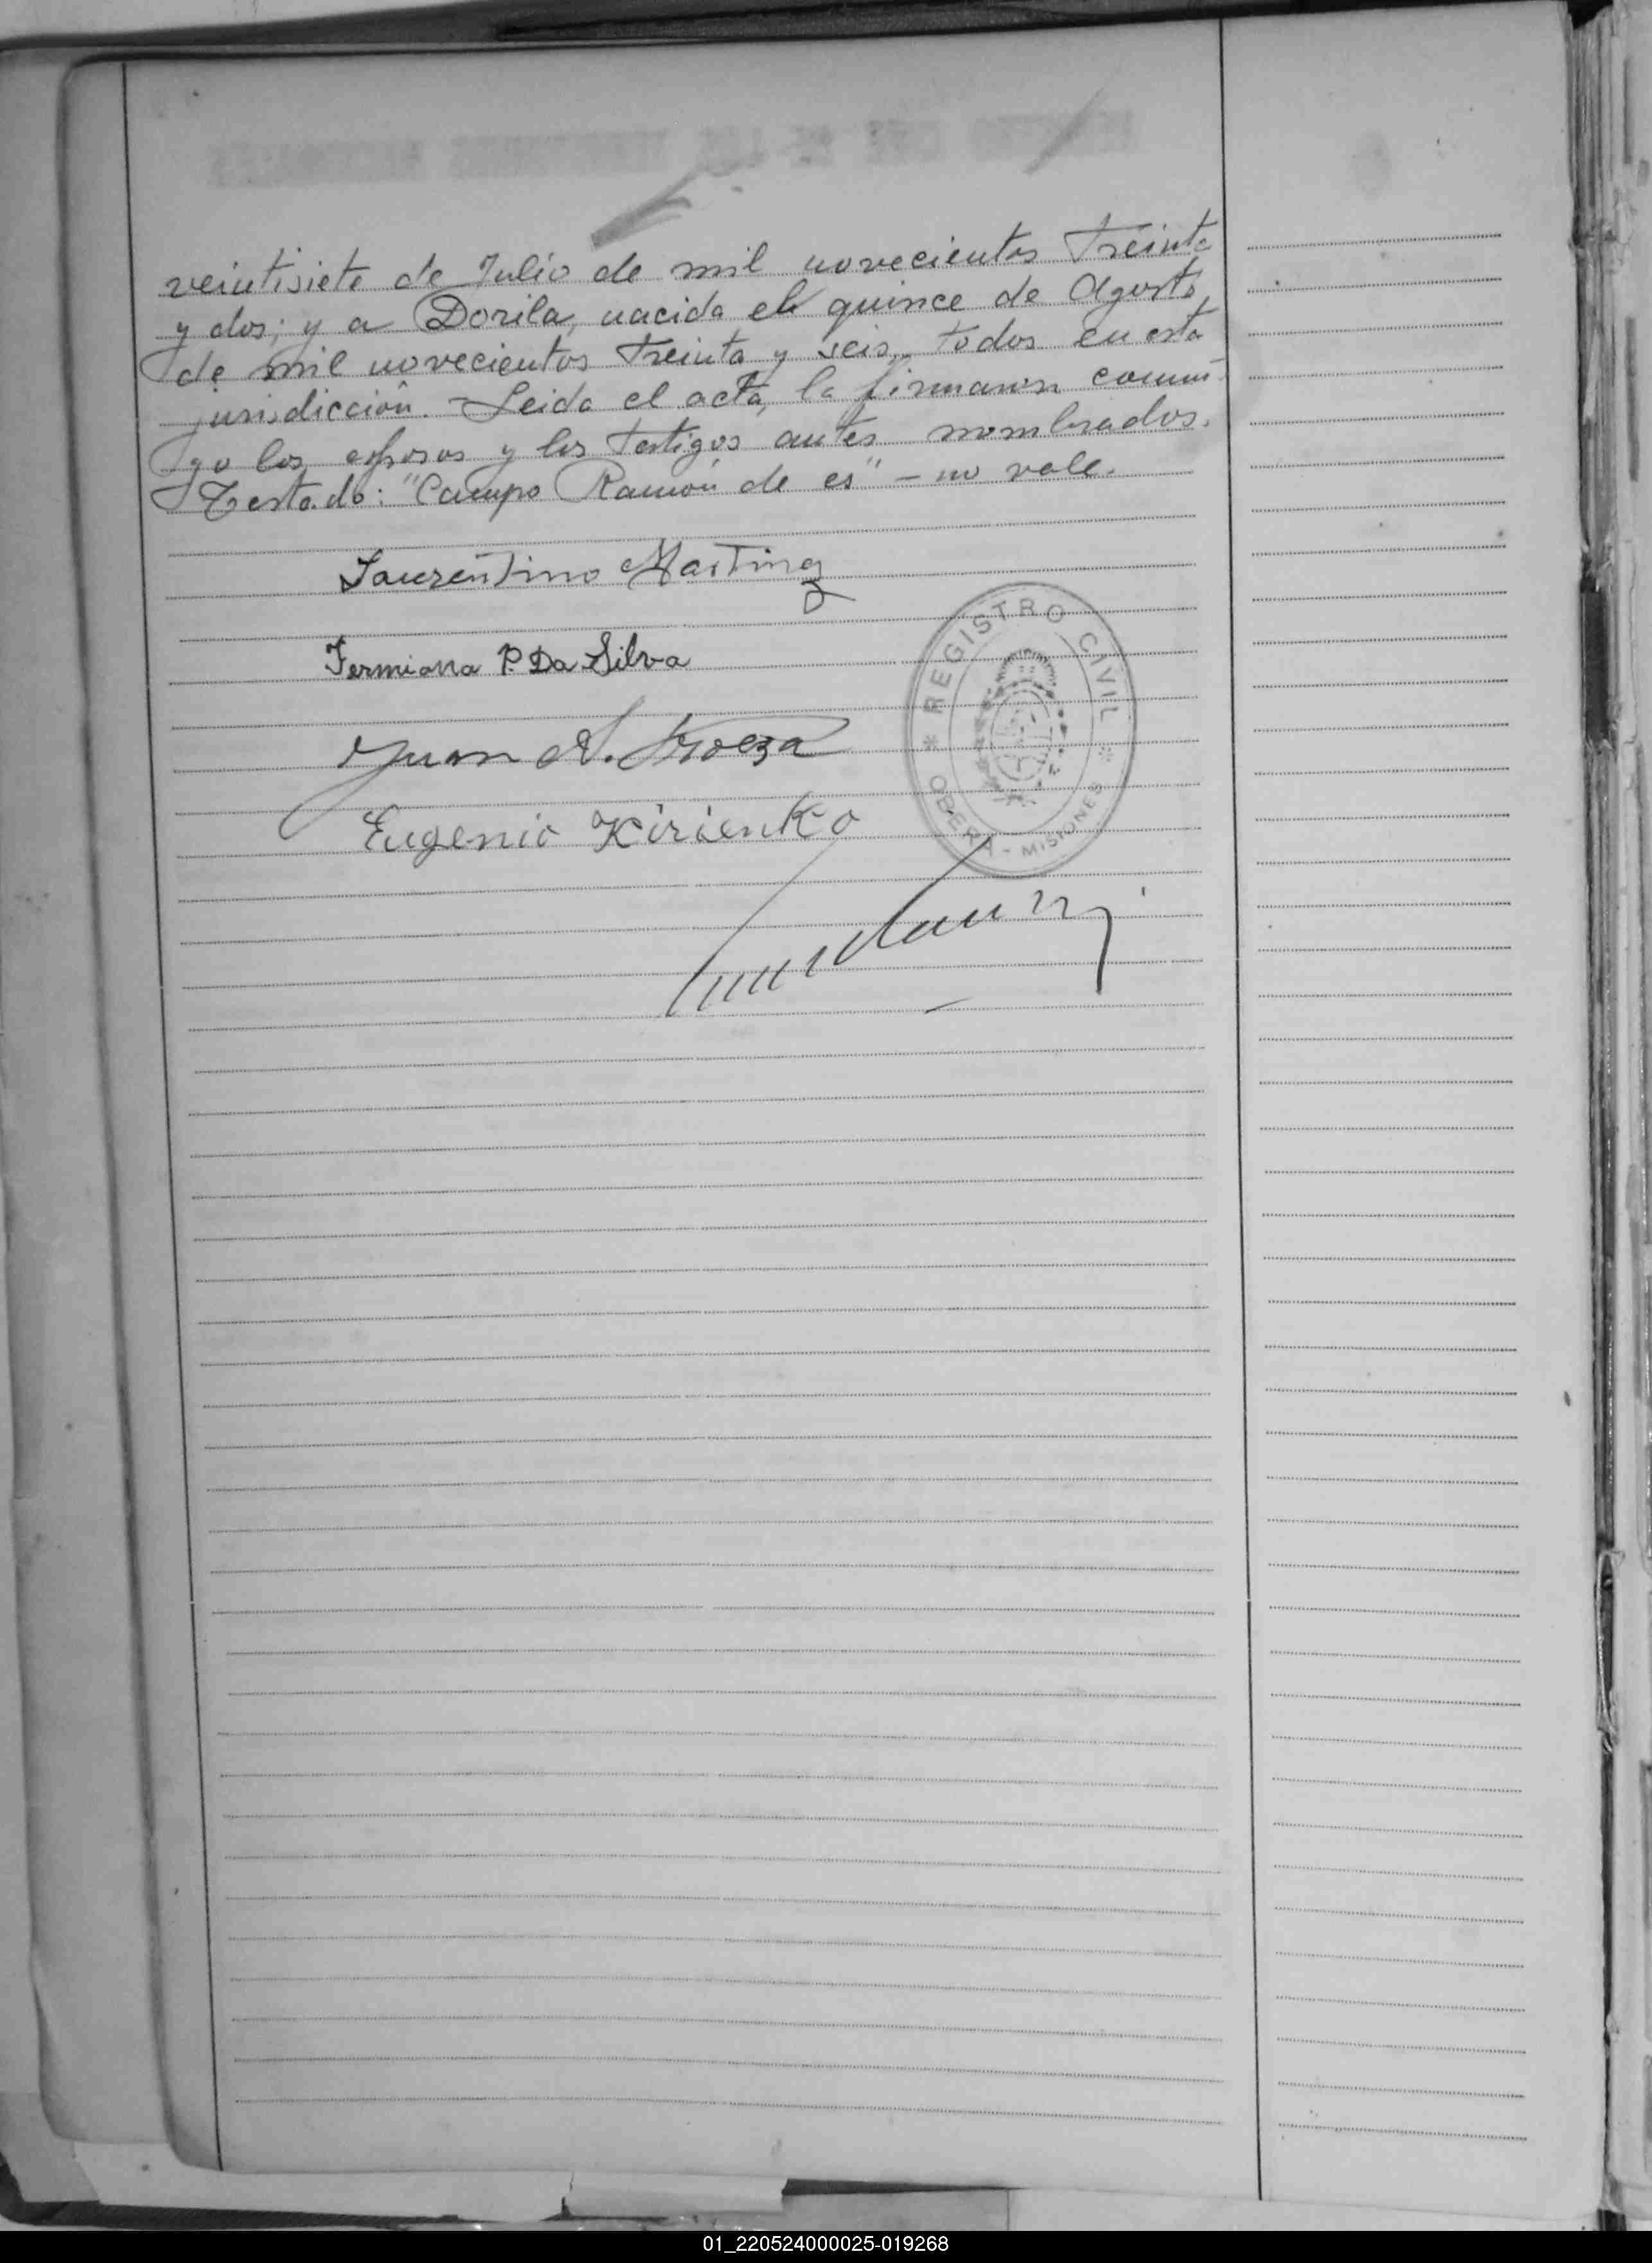 veintisiete de Julio de mil novecientos treinta
y dos; y a Dorila, nacida el quince de Agosto,
de mil novecientos treinta y seis, todos en esta
jurisdicción. - Leida el acta, la firmaron conmi-
go los esposos y los testigos antes nombrados.
Testado: "Campo Ramón de es" - no vale.
Laurentino Martinez
Fermiana P. Da Silva
Juan A.
Eugenio Kirienko
REGISTRO CIVIL
OBERA - MISIONES
01_220524000025-019268